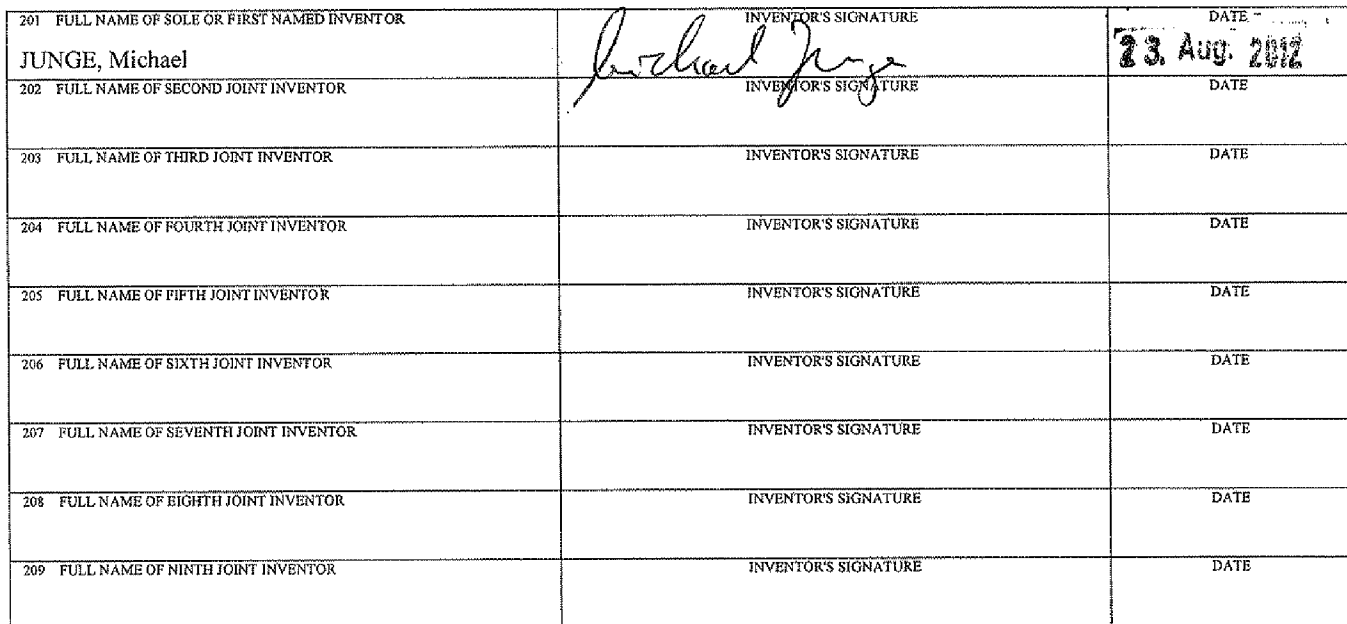 201 FULL NAME OF SOLE OR FIRST NAMED INVENTOR INVENTOR'S SIGNATURE DATE
JUNGE, Michael Michael Junge 23. Aug. 2012
202 FULL NAME OF SECOND JOINT INVENTOR INVENTOR'S SIGNATURE DATE
203 FULL NAME OF THIRD JOINT INVENTOR INVENTOR'S SIGNATURE DATE
204 FULL NAME OF FOURTH JOINT INVENTOR INVENTOR'S SIGNATURE DATE
205 FULL NAME OF FIFTH JOINT INVENTOR INVENTOR'S SIGNATURE DATE
206 FULL NAME OF SIXTH JOINT INVENTOR INVENTOR'S SIGNATURE DATE
207 FULL NAME OF SEVENTH JOINT INVENTOR INVENTOR'S SIGNATURE DATE
208 FULL NAME OF EIGHTH JOINT INVENTOR INVENTOR'S SIGNATURE DATE
209 FULL NAME OF NINTH JOINT INVENTOR INVENTOR'S SIGNATURE DATE